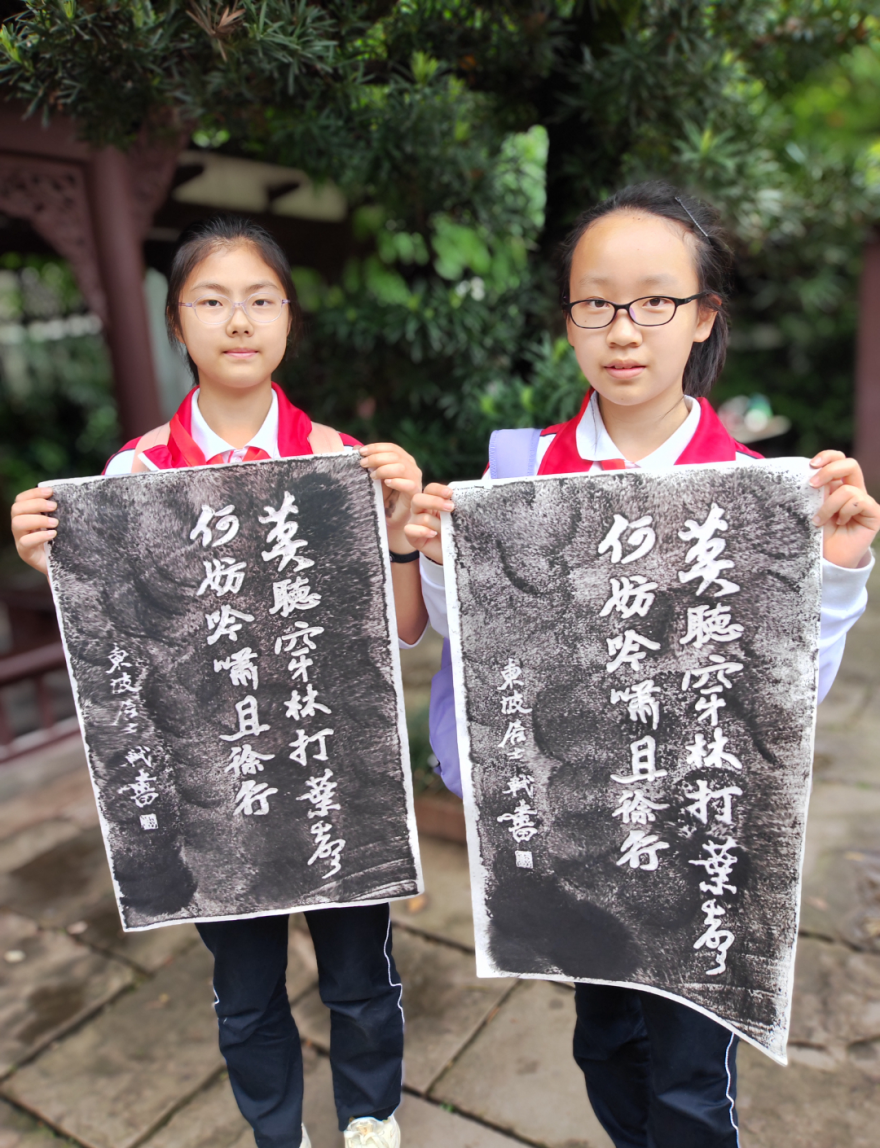 莫聽穿林打葉聲
何妨吟嘯且徐行
東坡居士軾書
莫聽穿林打葉聲
何妨吟嘯且徐行
東坡居士軾書